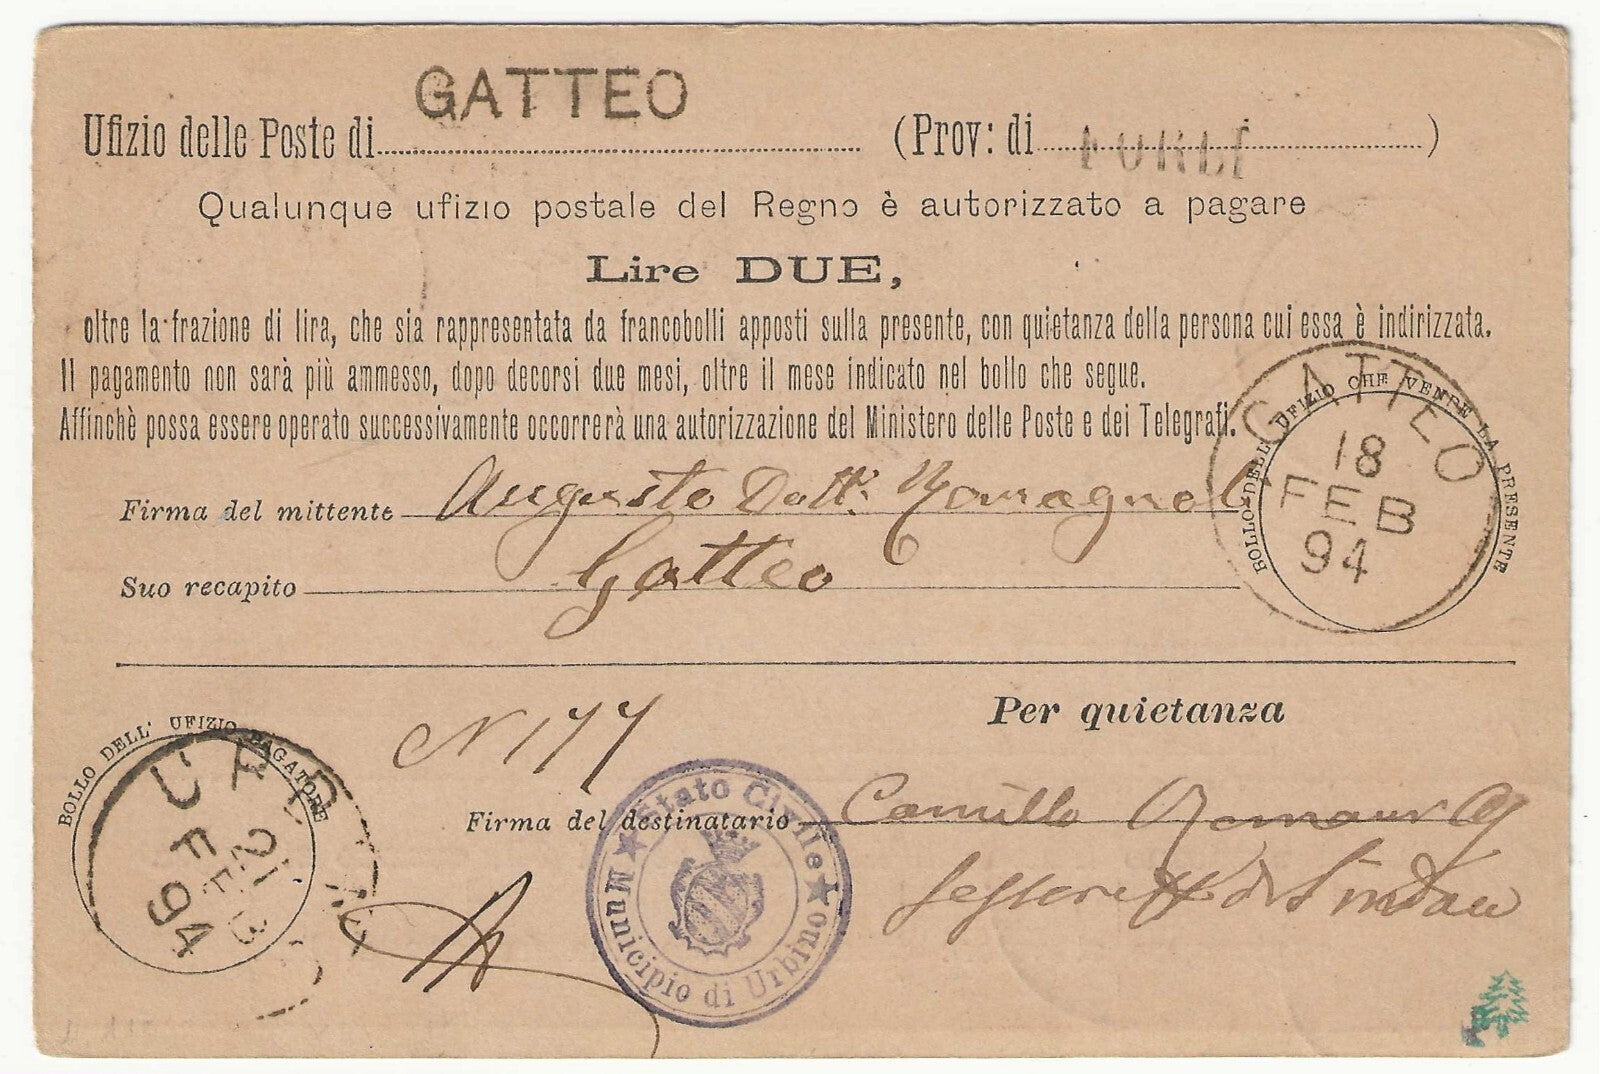 GATTEO
Ufizio delle Poste di (Prov: di FORLÌ)
Qualunque ufizio postale del Regno è autorizzato a pagare
Lire DUE,
oltre la frazione di lira, che sia rappresentata da francobolli apposti sulla presente, con quietanza della persona cui essa è indirizzata.
Il pagamento non sarà più ammesso, dopo decorsi due mesi, oltre il mese indicato nel bollo che segue.
Affinchè possa essere operato successivamente occorrerà una autorizzazione del Ministero delle Poste e dei Telegrafi.
BOLLO DELL' UFIZIO CHE VENDE LA PRESENTE
GATTEO
18
FEB
94
Firma del mittente Augusto Dott. Romagnoli
Suo recapito Gatteo
N 177
Per quietanza
BOLLO DELL' UFIZIO PAGATORE
URBINO
21
FEB
94
Firma del destinatario Camillo
Sindaco
Stato Civile
Municipio di Urbino